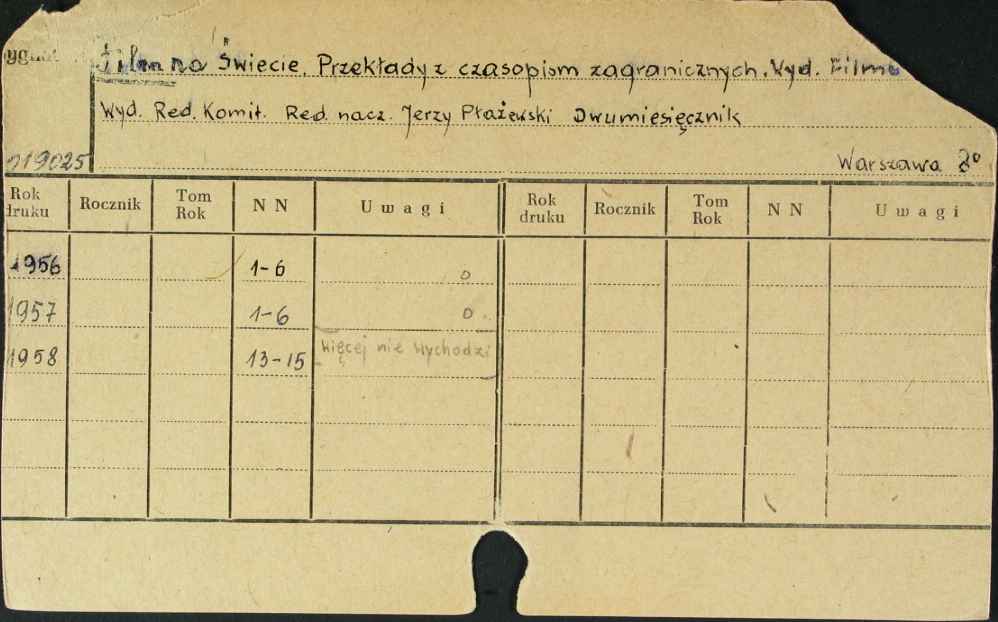 Film na Świecie. Przekłady z czasopism zagranicznych. Wyd. Filmo
Wyd. Red. Komit. Red. nacz. Jerzy Płażewski Dwumiesięcznik
19025 Warszawa 8°
Rok druku Rocznik Tom Rok NN Uwagi Rok druku Rocznik Tom Rok NN Uwagi
1956 1-6 0
1957 1-6 0
1958 13-15 więcej nie wychodzi